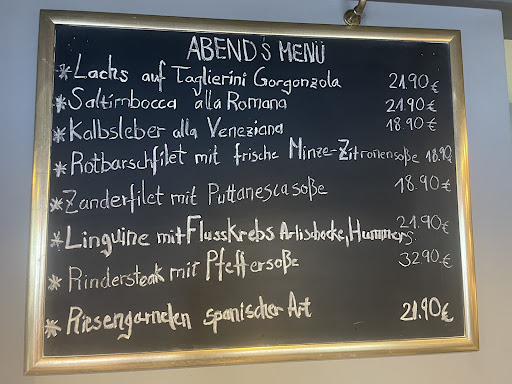 ABEND'S MENÜ
* Lachs auf Taglierini Gorgonzola 21.90 €
* Saltimbocca alla Romana 21.90 €
* Kalbsleber alla Veneziana 18.90 €
* Rotbarschfilet mit frische Minze-Zitronensoße 18.90
* Zanderfilet mit Puttanescasoße 18.90 €
* Linguine mit Flusskrebs Artischocke, Hummers. 21.90 €
* Rindersteak mit Pfeffersoße 32.90 €
* Riesengarnelen spanischer Art 21.90 €